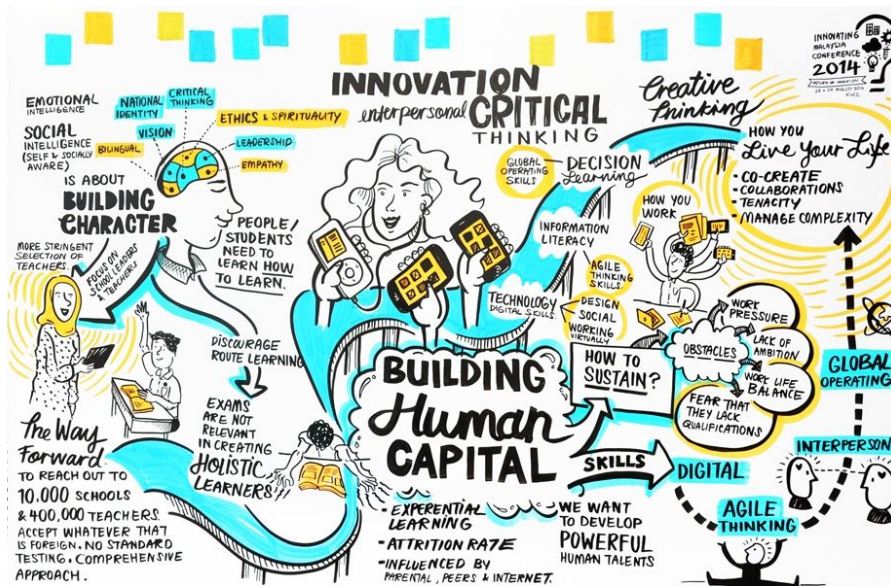 INNOVATING
MALAYSIA
CONFERENCE
2014
KLCC
EMOTIONAL
INTELLIGENCE
SOCIAL
INTELLIGENCE
(SELF & SOCIALLY
AWARE)
NATIONAL
IDENTITY
CRITICAL
THINKING
VISION
BILINGUAL
ETHICS & SPIRITUALITY
LEADERSHIP
EMPATHY
IS ABOUT
BUILDING
CHARACTER
MORE STRINGENT
SELECTION OF
TEACHERS.
FOCUS ON
SCHOOL LEADERS
& TEACHERS
PEOPLE/
STUDENTS
NEED TO
LEARN HOW
TO LEARN.
DISCOURAGE
ROUTE LEARNING
EXAMS ARE
ARE NOT
RELEVANT
IN CREATING
HOLISTIC
LEARNERS
The Way
Forward
TO REACH OUT TO
10.000 SCHOOLS
& 400,000 TEACHERS.
ACCEPT WHATEVER THAT
IS FOREIGN. NO STANDARD
TESTING. COMPREHENSIVE
APPROACH.
INNOVATION
interpersonal CRITICAL
THINKING
GLOBAL
OPERATING
SKILLS
DECISION
Learning
INFORMATION
LITERACY
TECHNOLOGY
DIGITAL SKILLS
AGILE
THINKING
SKILLS
DESIGN
SOCIAL
WORKING
VIRTUALLY
BUILDING
Human
CAPITAL
- EXPERENTIAL
LEARNING
- ATTRITION RATE
- INFLUENCED BY
PARENTAL, PEERS & INTERNET.
Creative
Thinking
HOW YOU
Live Your Life
• CO-CREATE
• COLLABORATIONS
• TENACITY
• MANAGE COMPLEXITY
HOW YOU
WORK
HOW TO
SUSTAIN?
OBSTACLES
WORK
PRESSURE
LACK OF
AMBITION
WORK LIFE
BALANCE
FEAR THAT
THEY LACK
QUALIFICATIONS
SKILLS
DIGITAL
AGILE
THINKING
INTERPERSON
GLOBAL
OPERATING
WE WANT
TO DEVELOP
POWERFUL
HUMAN TALENTS